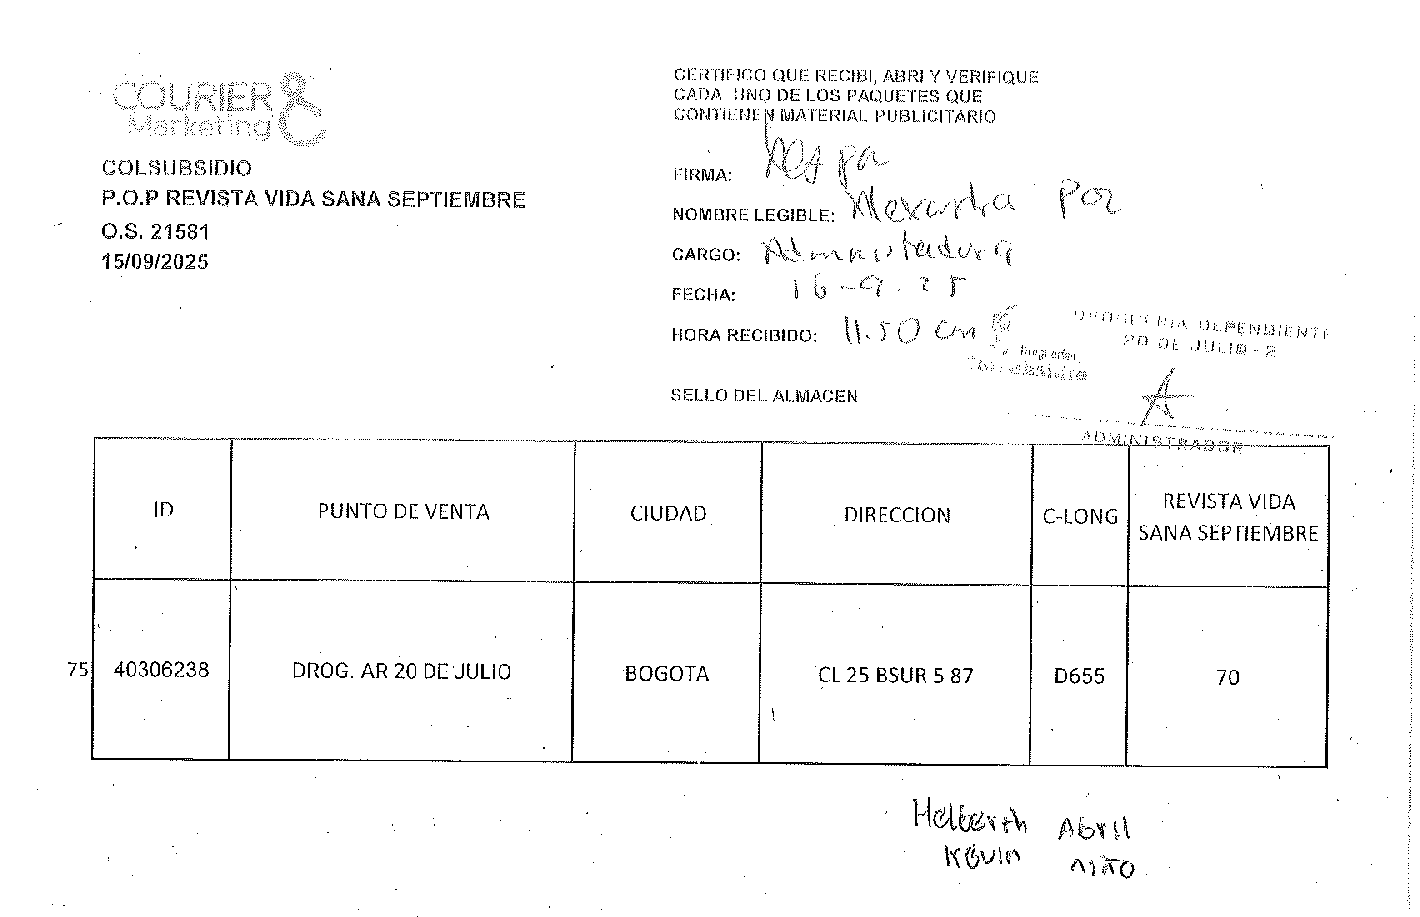 COURIER
Marketing
COLSUBSIDIO
P.O.P REVISTA VIDA SANA SEPTIEMBRE
O.S. 21581
15/09/2025
CERTIFICO QUE RECIBI, ABRI Y VERIFIQUE
CADA UNO DE LOS PAQUETES QUE
CONTIENEN MATERIAL PUBLICITARIO
FIRMA:
NOMBRE LEGIBLE: Alexandra
CARGO:
FECHA: 16-9-25
HORA RECIBIDO: 11.50
DROGUERIA DEPENDIENTE
20 DE JULIO - 2
SELLO DEL ALMACEN
ADMINISTRADOR
ID PUNTO DE VENTA CIUDAD DIRECCION C-LONG REVISTA VIDA SANA SEPTIEMBRE
75 40306238 DROG. AR 20 DE JULIO BOGOTA CL 25 BSUR 5 87 D655 70
Helberth Abril
Kevin Niño